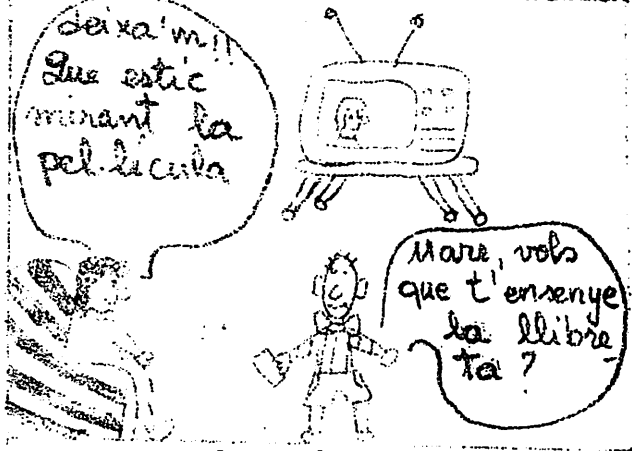 deixa'm!!
Que estic
mirant la
pel·lícula
Mare, vols
que t'ensenye
la llibre
ta?